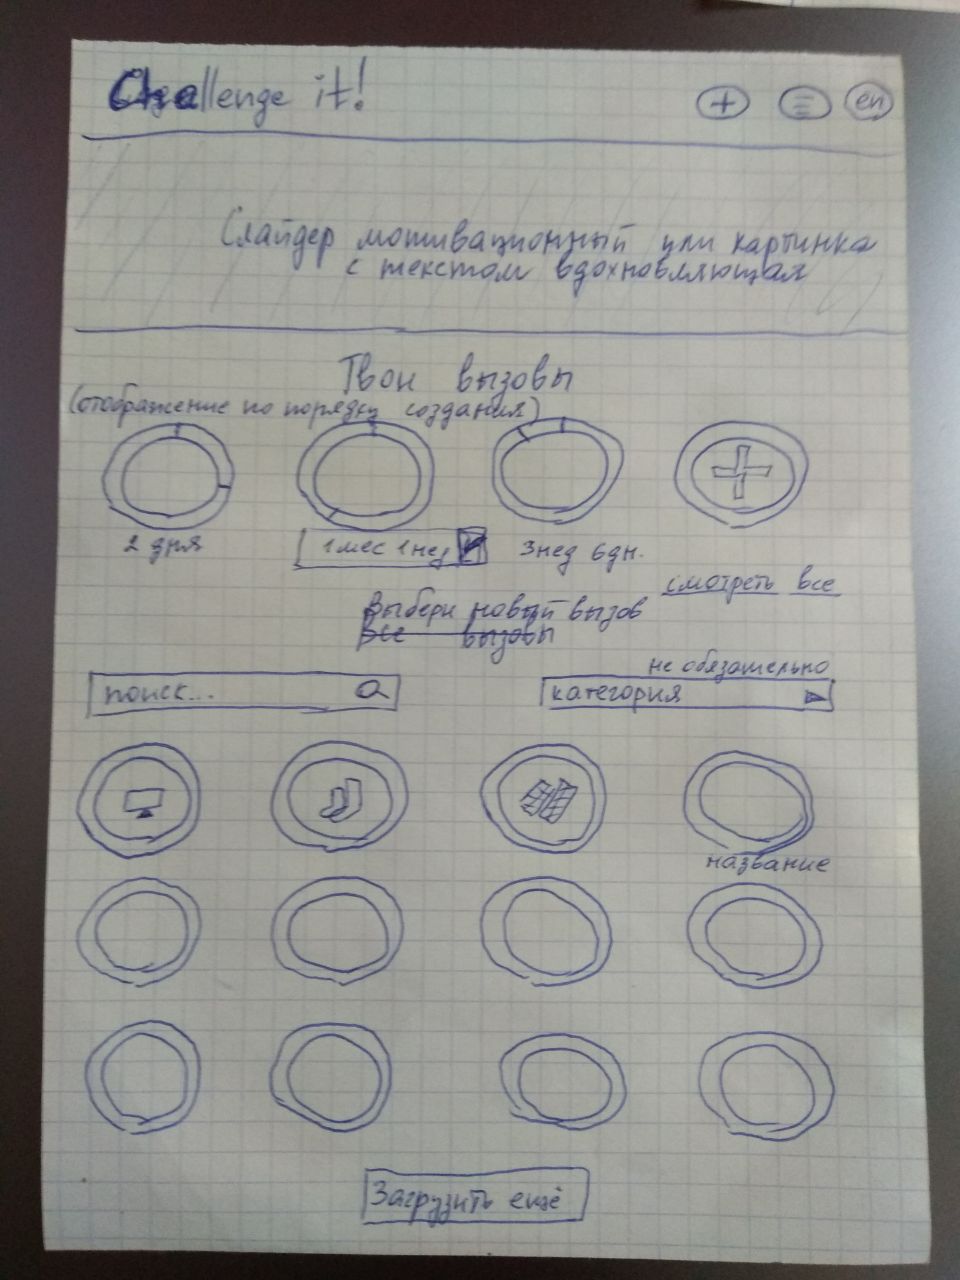 Challenge it!
+ en
Слайдер мотивационный или картинка
с текстом вдохновляющая
Твои вызовы
(отображение по порядку создания)
2 дня 1 мес 1 нед 3 нед 6 дн.
смотреть все
Выбери новый вызов
Все вызовы
не обязательно
поиск... категория
название
Загрузить ещё